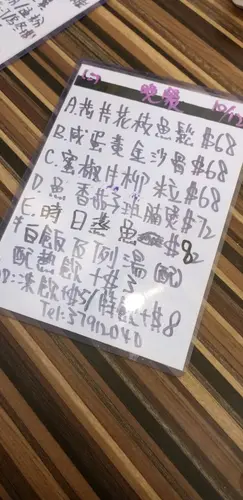 (二) 晚餐 10/12
A.枝片花枝魚鬆$68
B.咸蛋黃金沙骨$68
C.蜜椒牛柳粒$68
D.魚香茄子班腩煲$72
E.時日蒸魚$82
*白飯及例湯(配)
配熱飲+$3
凍飲+$5/特飲+$8
Tel:37912040